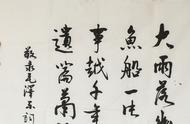 大雨落幽
魚船一片
事越千年
遺篇蕭
敬录毛澤东詞